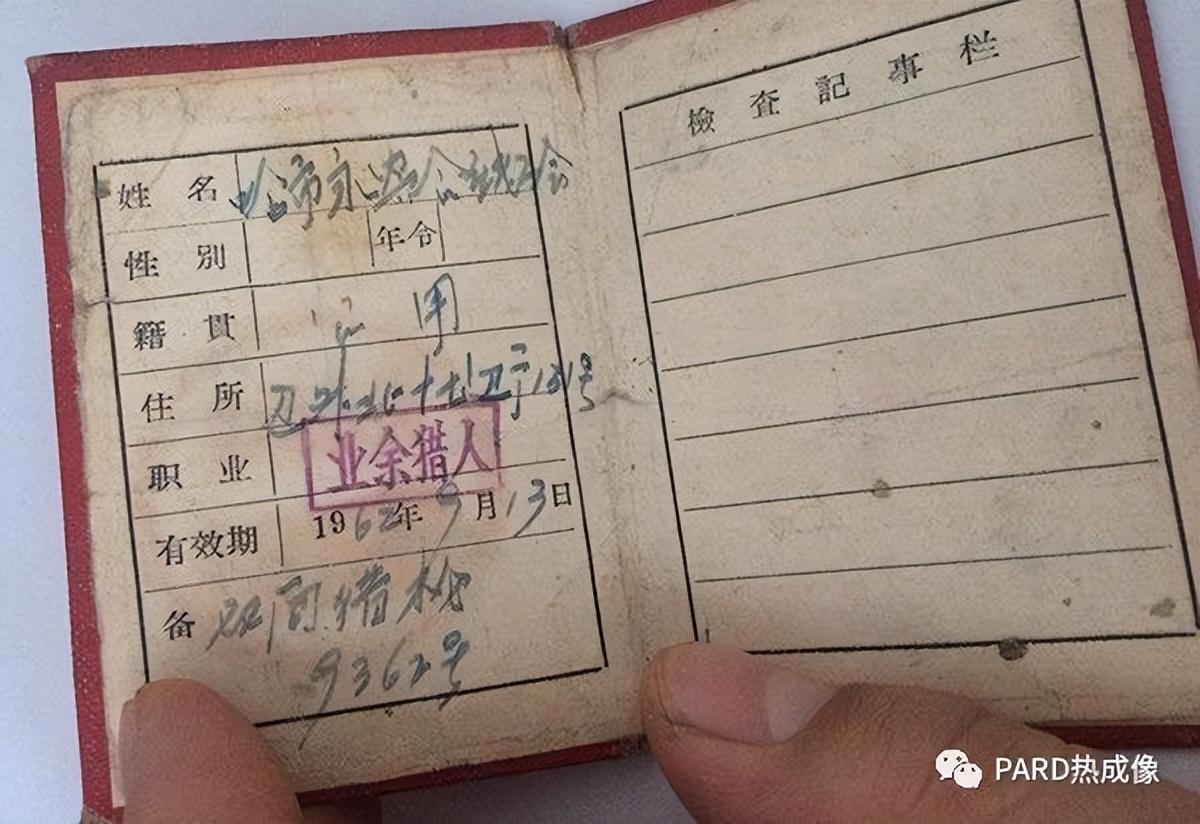 姓名 哈市
性别 年令
籍贯 公用
住所 十七 131号
职业 业余猎人
有效期 1962年9月13日
备 双筒猎枪
9362号
檢查記事栏
PARD热成像